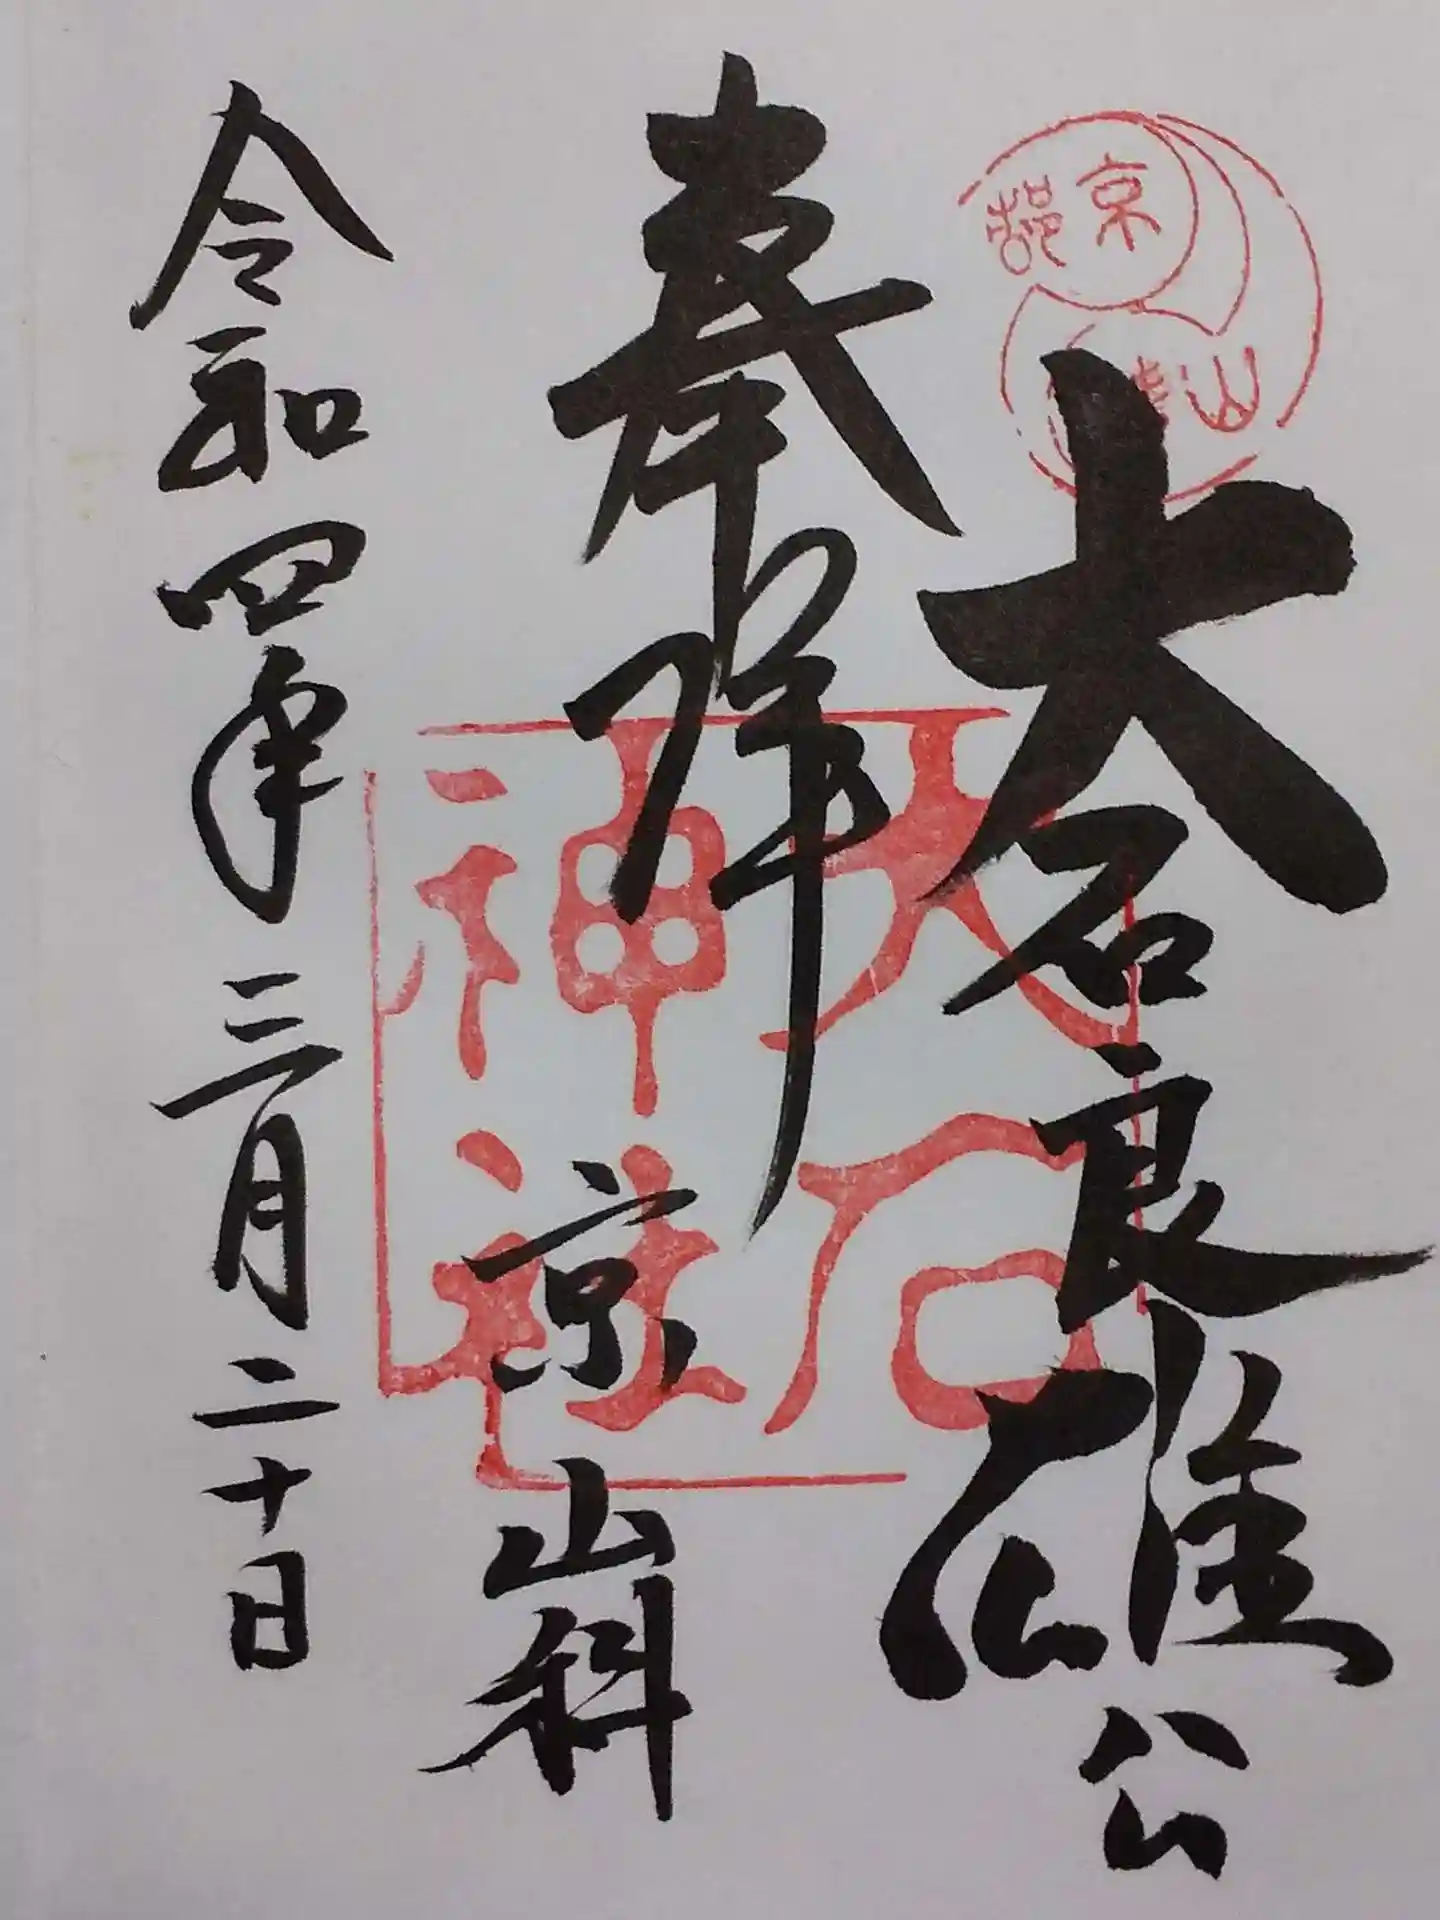 大石良雄公
奉拝
京山科
令和四年三月二十日
大石
神社
京都
山